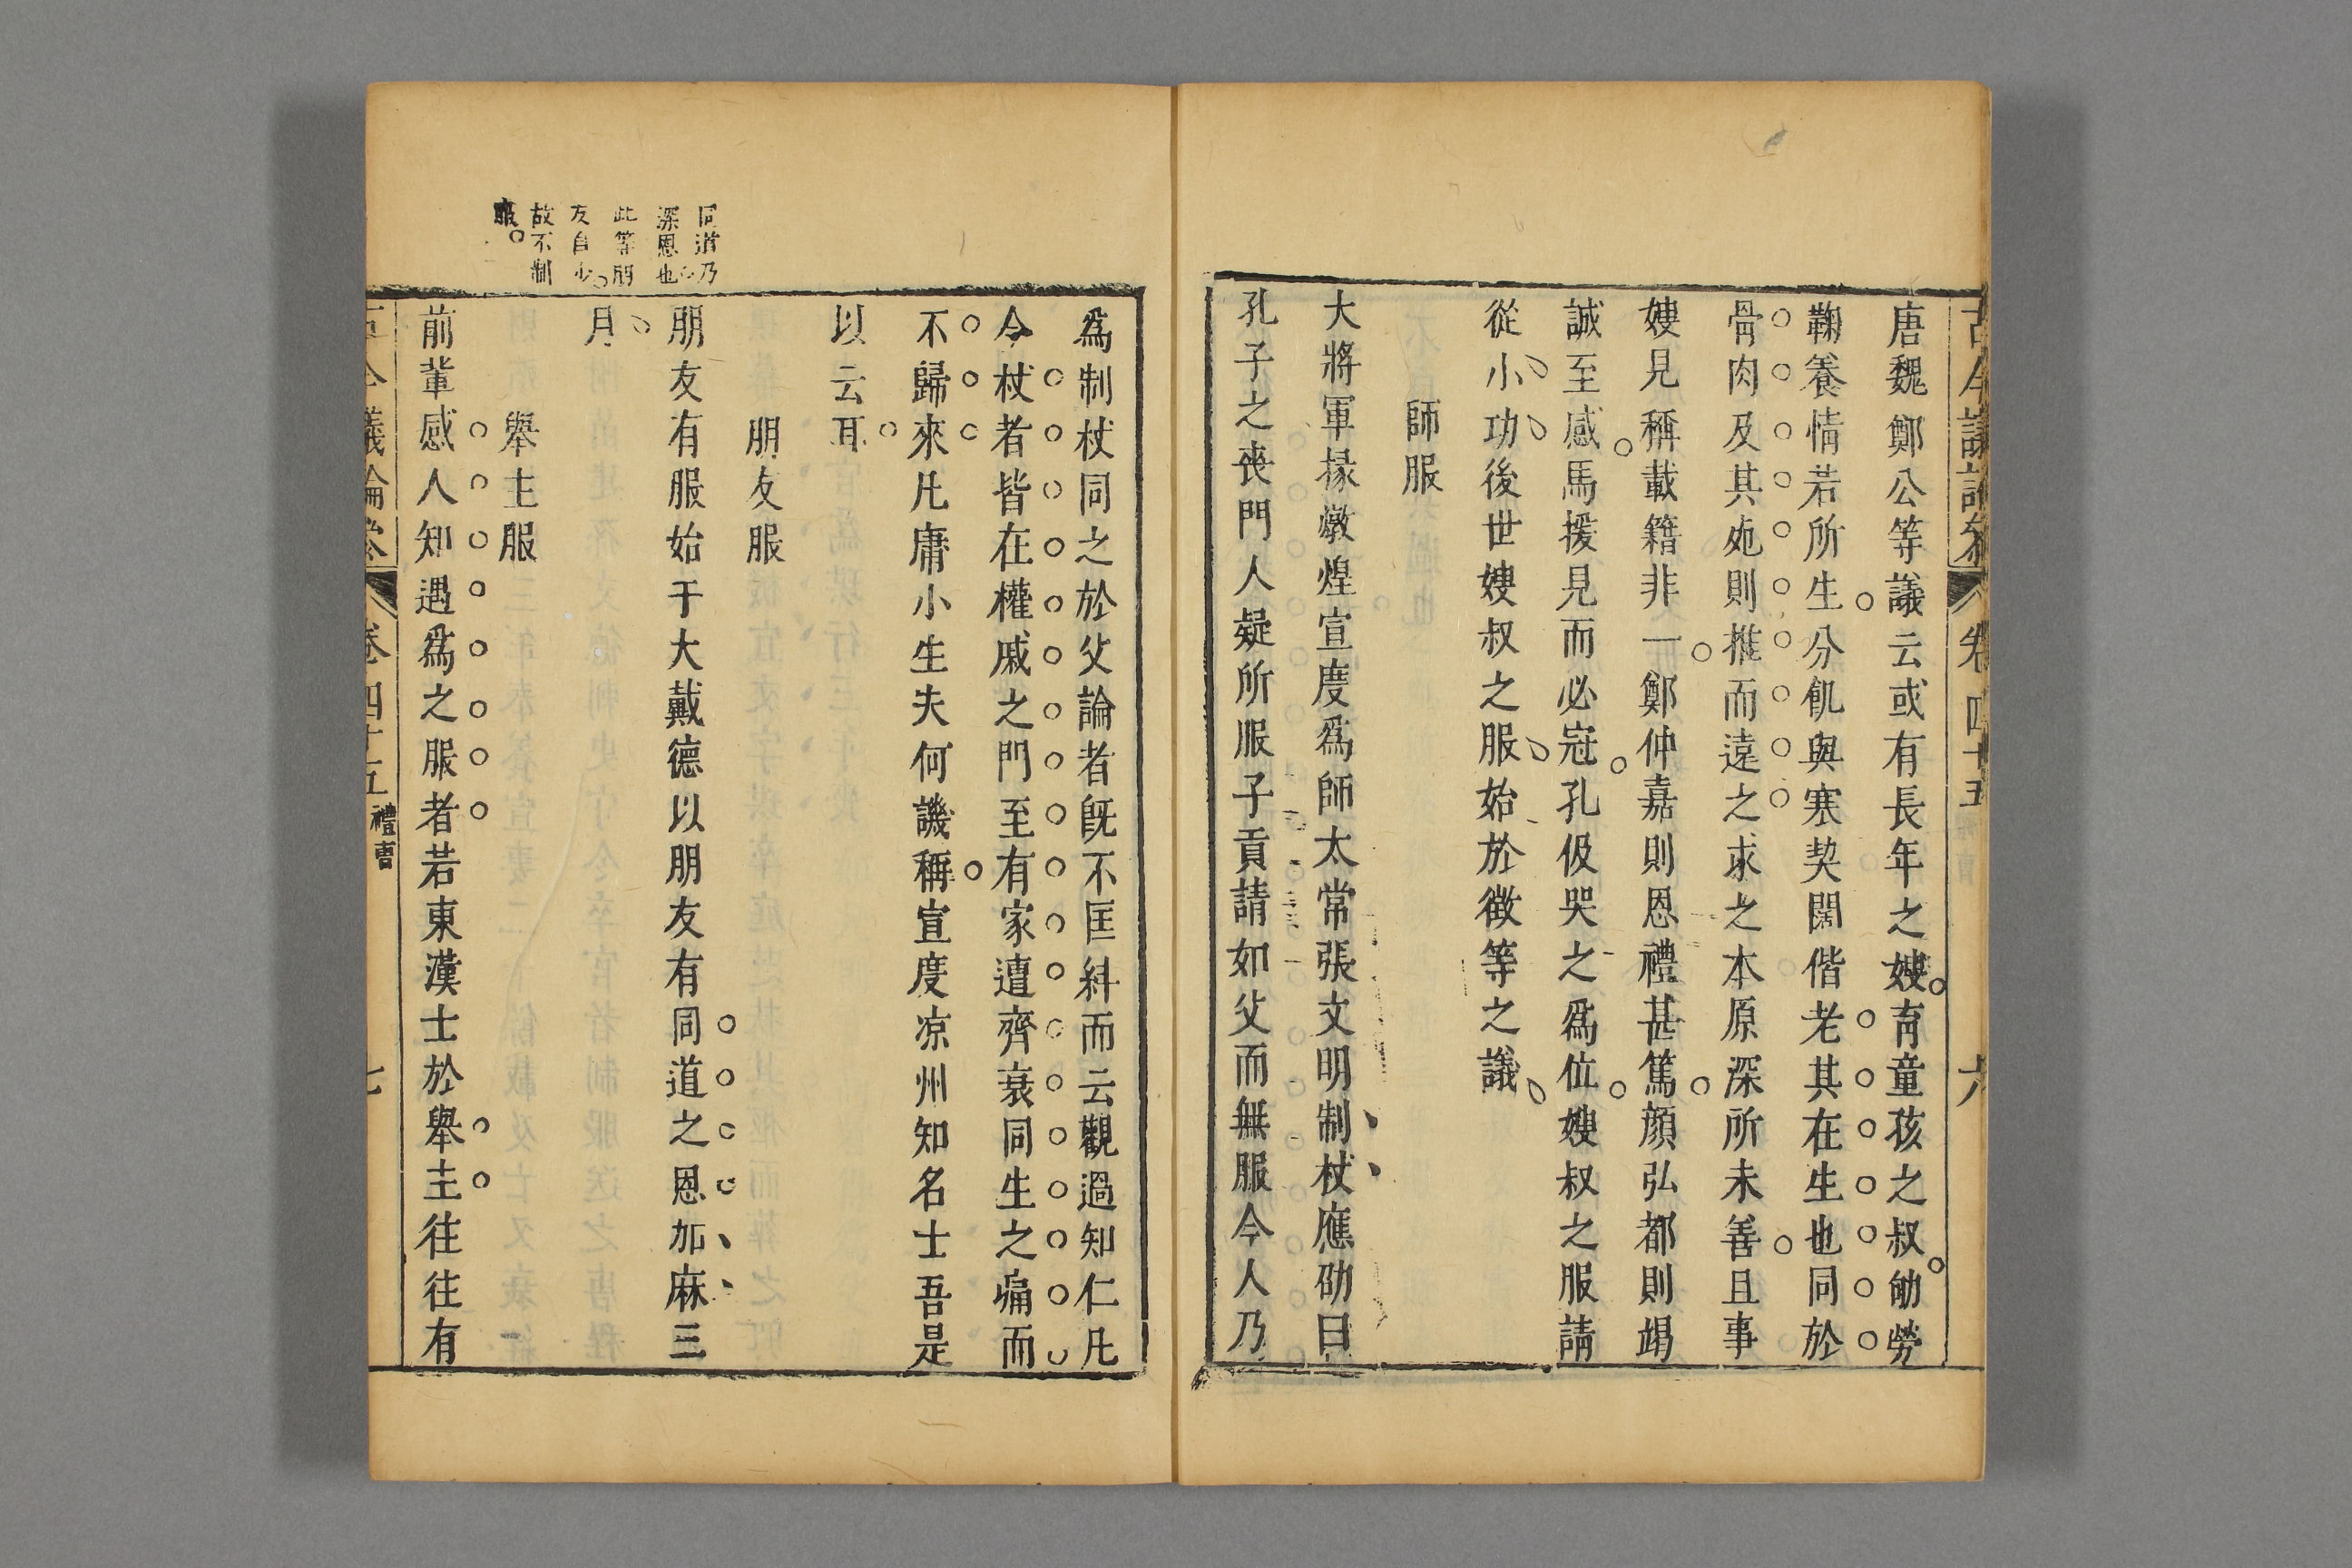 唐魏鄭公等議云或有長年之嫂育童孩之叔劬勞
鞠養情若所生分飢與寒契闊偕老其在生也同於
骨肉及其死則推而遠之求之本原深所未善且事
嫂見稱載籍非一鄭仲嘉則恩禮甚篤顔弘都則竭
誠至感馬援見而必冠孔伋哭之爲位嫂叔之服請
從小功後世嫂叔之服始於徵等之議
師服
大將軍掾燉煌宣度爲師太常張文明制杖應劭曰
孔子之喪門人疑所服子貢請如父而無服今人乃
古今議論參 卷四十五 六
爲制杖同之於父論者既不匡糾而云觀過知仁凡
今杖者皆在權戚之門至有家遭齊衰同生之痛而
不歸來凡庸小生夫何譏稱宣度凉州知名士吾是
以云耳
朋友服
朋友有服始于大戴德以朋友有同道之恩加麻三
月
舉主服
前輩感人知遇爲之服者若東漢士於舉主往往有
同道乃
深恩也
此等朋
友自少
故不制
服
古今議論參 卷四十五 禮曹 七